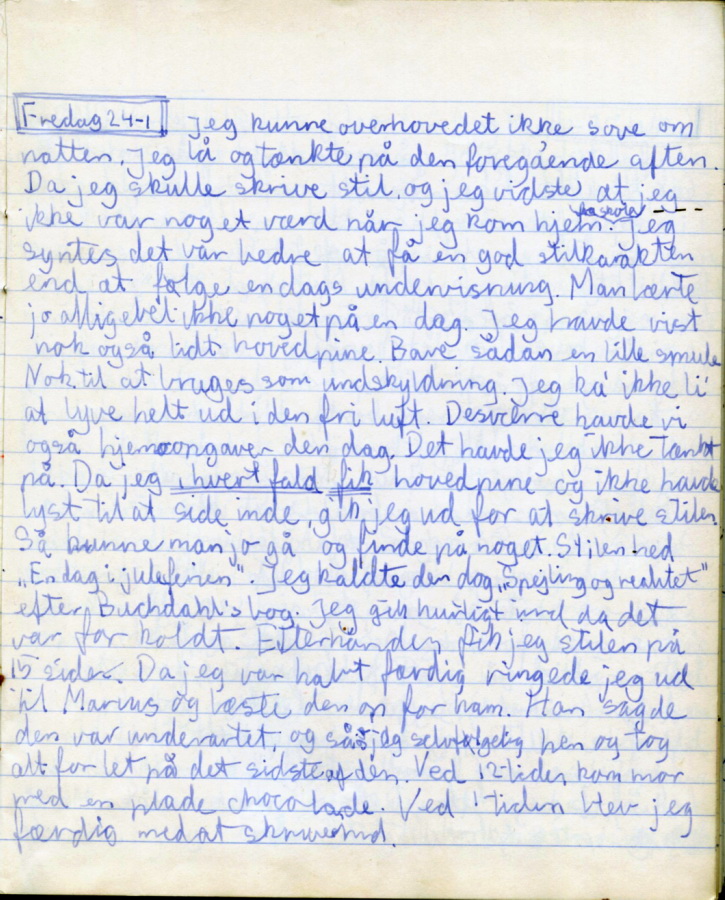 Fredag 24-1 Jeg kunne overhovedet ikke sove om
natten. Jeg lå og tænkte på den foregående aften.
Da jeg skulle skrive stil, og jeg vidste at jeg
ikke var noget værd når jeg kom hjem fra skole. Jeg
syntes det var bedre at få en god stilkarakter
end at følge en dags undervisning. Man lærte
jo alligevel ikke noget på en dag. Jeg havde vist
nok også lidt hovedpine. Bare sådan en lille smule
Nok til at bruges som undskyldning. Jeg ka' ikke li'
at lyve helt ud i den fri luft. Desværre havde vi
også hjemmeopgaver den dag. Det havde jeg ikke tænkt
på. Da jeg i hvert fald fik hovedpine og ikke havde
lyst til at side inde, gik jeg ud for at skrive stilen.
Så kunne man jo gå og finde på noget. Stilen hed
"En dag i juleferien". Jeg kaldte den dog "Spejling og realitet"
efter Buchdahl's bog. Jeg gik hurtigt ind da det
var for koldt. Efterhånden fik jeg stilen på
15 sider. Da jeg var halvt færdig ringede jeg ud
til Marius og læste den op for ham. Han sagde
den var underartet, og så jeg selvfølgelig hen og tog
alt for let på det sidste af den. Ved 12-tiden kom mor
med en plade chocolade. Ved 1 tiden blev jeg
færdig med at skrive ind.